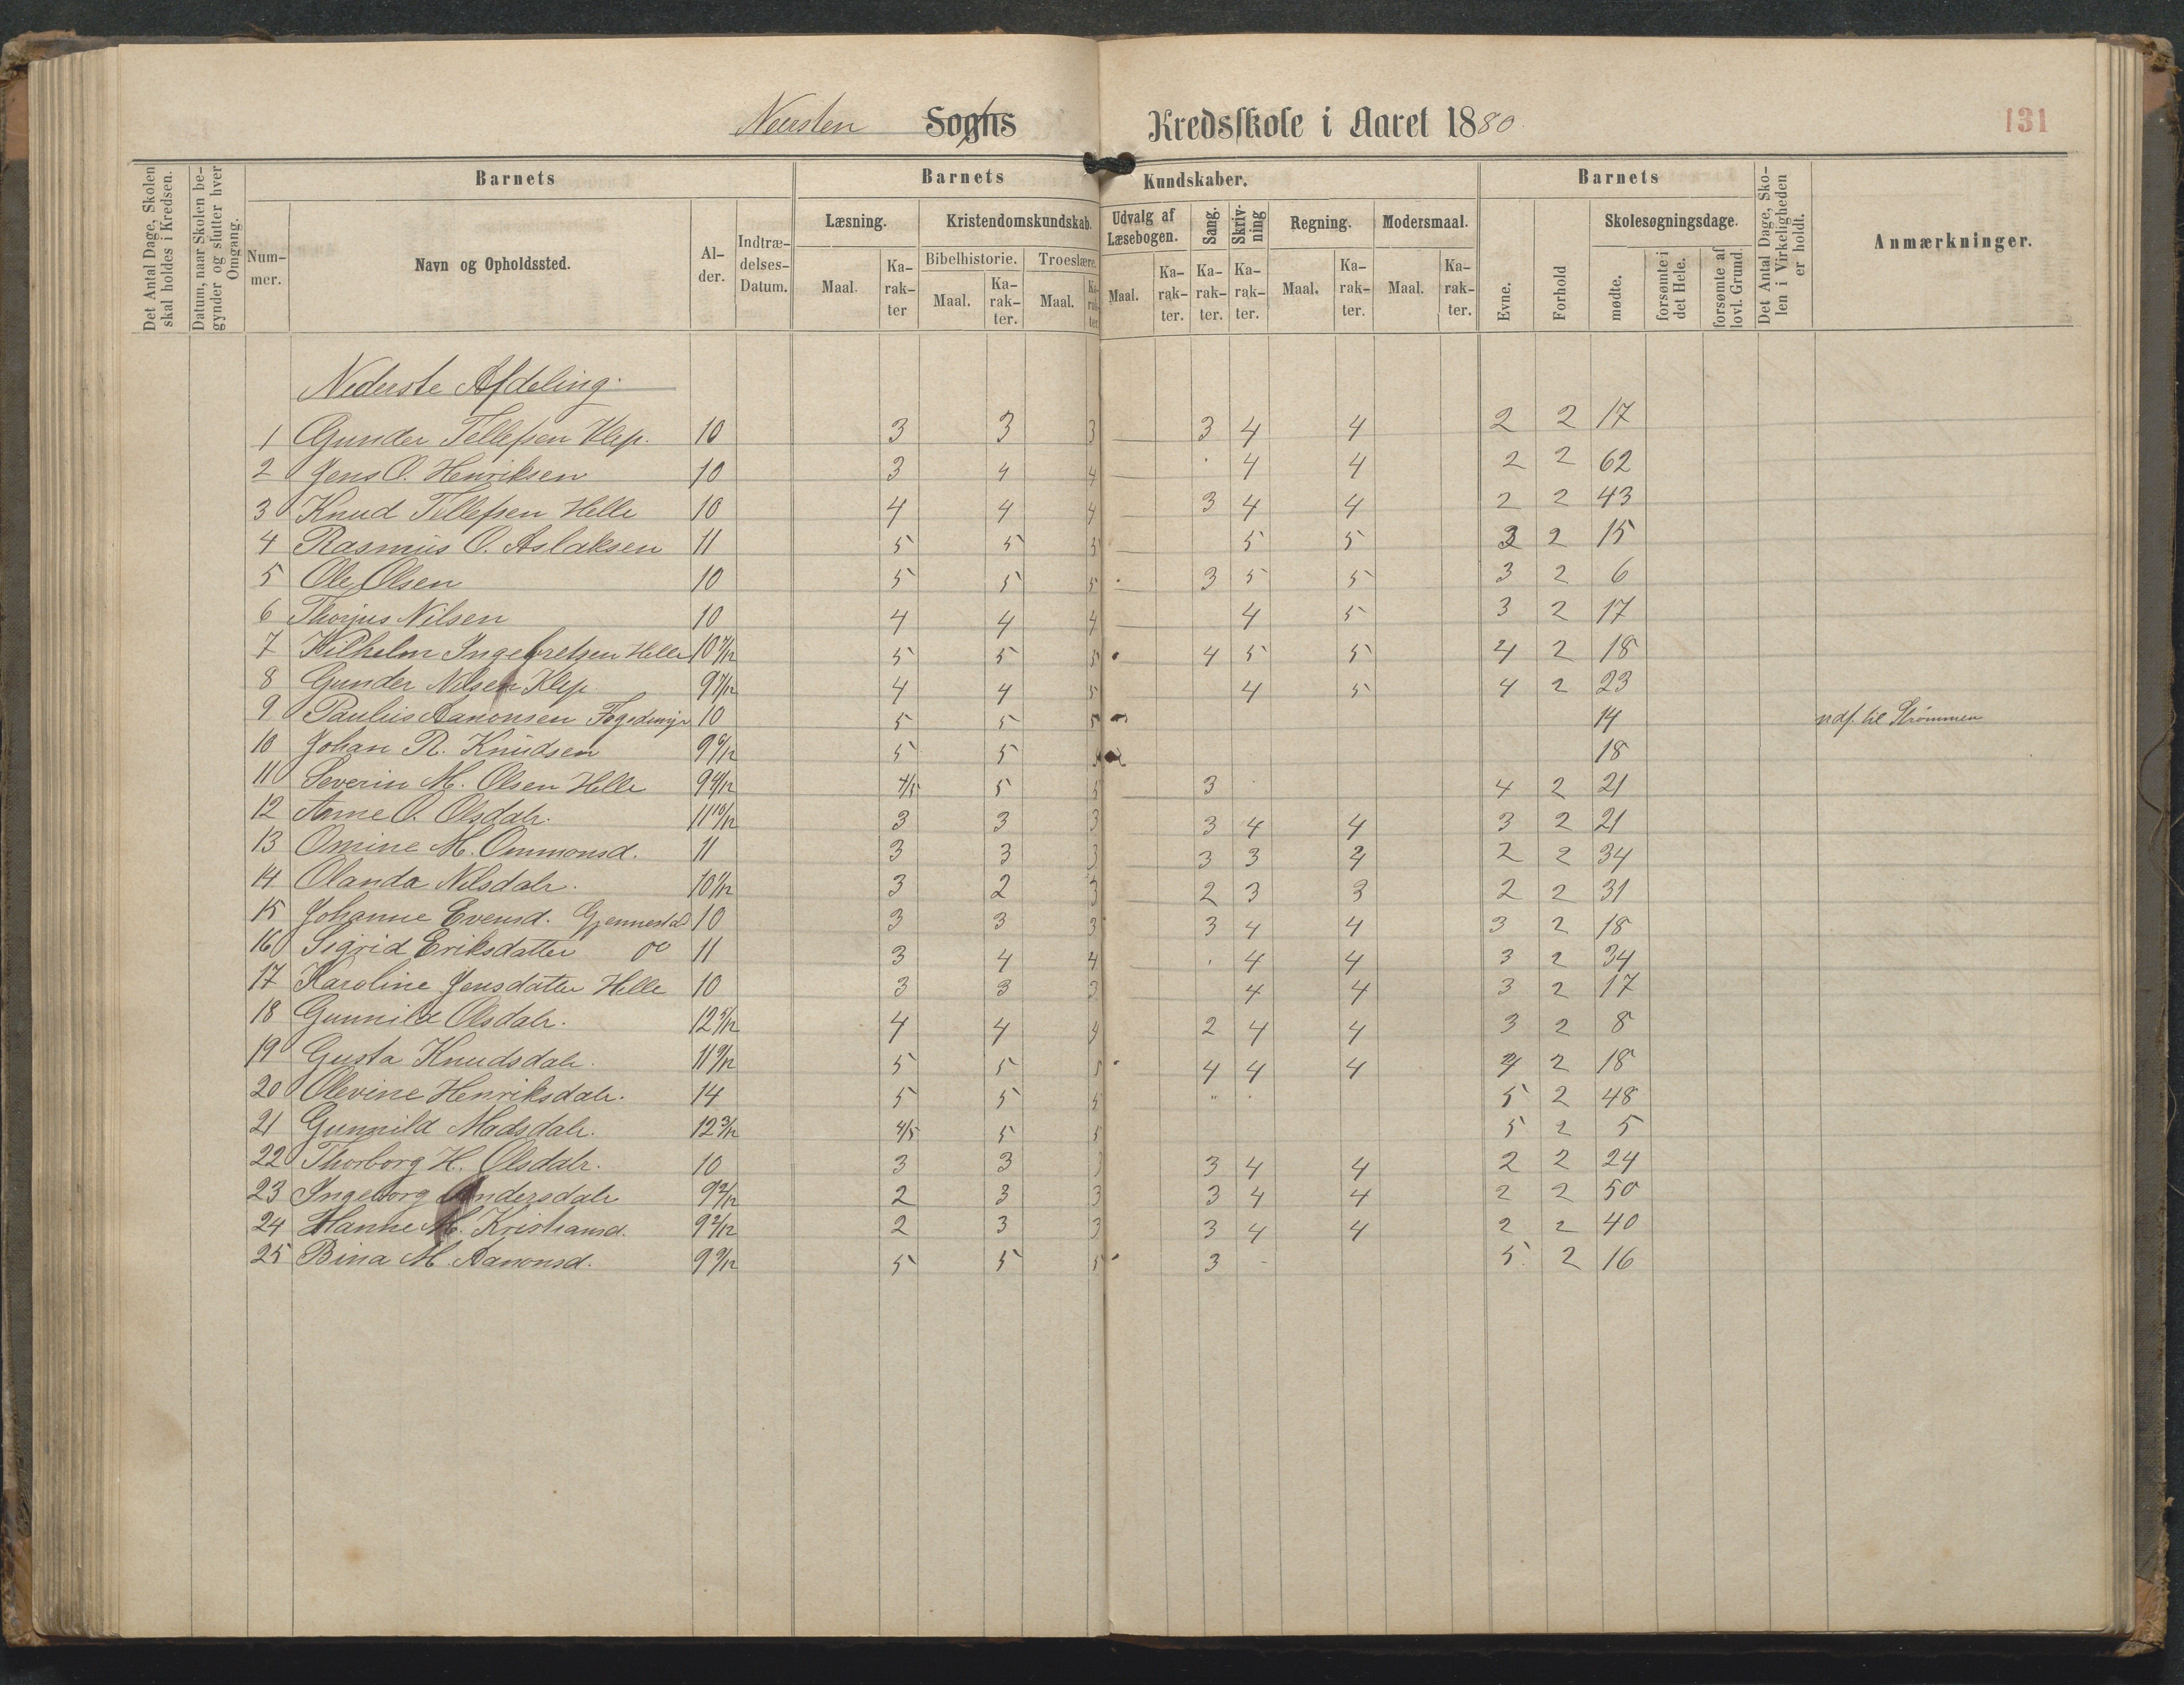 Neersten Sogns Kredsskole i Aaret 1880.
131
Det Antal Dage, Skolen skal holdes i Kredsen.
Datum, naar Skolen begynder og slutter hver Omgang.
Barnets
Nummer.
Navn og Opholdssted.
Alder.
Indtrædelses-Datum.
Barnets Kundskaber.
Læsning.
Maal.
Karakter
Kristendomskundskab.
Bibelhistorie.
Maal.
Karakter.
Troeslære.
Maal.
Karakter.
Udvalg af Læsebogen.
Maal.
Karakter.
Sang.
Karakter.
Skrivning
Karakter.
Regning.
Maal.
Karakter.
Modersmaal.
Maal.
Karakter.
Barnets
Evne.
Forhold
Skolesøgningsdage.
mødte.
forsømte i det Hele.
forsømte af lovl. Grund
Det Antal Dage, Skolen i Virkeligheden er holdt.
Anmærkninger.
Nederste Afdeling.
1 Gunder Tellefsen Klep. 10 3 3 3 3 4 4 2 2 17
2 Jens O. Henriksen 10 3 4 4 4 4 2 2 62
3 Knud Tellefsen Helle 10 4 4 4 3 4 4 2 2 43
4 Rasmus O. Aslaksen 11 5 5 5 5 5 3 2 15
5 Ole Olsen 10 5 5 5 3 5 5 3 2 6
6 Thorjus Nilsen 10 4 4 4 4 5 3 2 17
7 Wilhelm Ingebretsen Helle 10 7/12 5 5 5 4 5 5 4 2 18
8 Gunder Nilsen Klep 9 7/12 4 4 5 4 5 4 2 23
9 Paulus Aanonsen Fogedmyr 10 5 5 5 14 ndf. til Strømmen
10 Johan R. Knudsen 9 6/12 5 5 18
11 Severin M. Olsen Helle 9 4/12 4/5 5 5 3 4 2 21
12 Anne O. Olsdatr. 11 10/12 3 3 3 3 4 4 3 2 21
13 Omine M. Ommonsd. 11 3 3 3 3 3 4 2 2 34
14 Olanda Nilsdatr. 10 1/12 3 2 3 2 3 3 2 2 31
15 Johanne Evensd. Gjennestad 10 3 3 3 3 4 4 3 2 18
16 Sigrid Eriksdatter do 11 3 4 4 4 4 3 2 34
17 Karoline Jensdatter Helle 10 3 3 3 4 4 3 2 17
18 Gunnild Olsdatr. 12 5/12 4 4 4 2 4 4 3 2 8
19 Gusta Knudsdatr. 11 9/12 5 5 5 4 4 4 4 2 18
20 Olevine Henriksdatr. 14 5 5 5 " 5 2 48
21 Gunnild Madsdatr. 12 3/12 4/5 5 5 5 2 5
22 Thorborg H. Olsdatr. 10 3 3 3 3 4 4 2 2 24
23 Ingeborg Andersdatr 9 2/12 2 3 3 3 4 4 2 2 50
24 Hanne M. Kristiansd. 9 2/12 2 3 3 3 4 4 2 2 40
25 Bina M. Aanonsd. 9 9/12 5 5 5 3 - 5 2 16